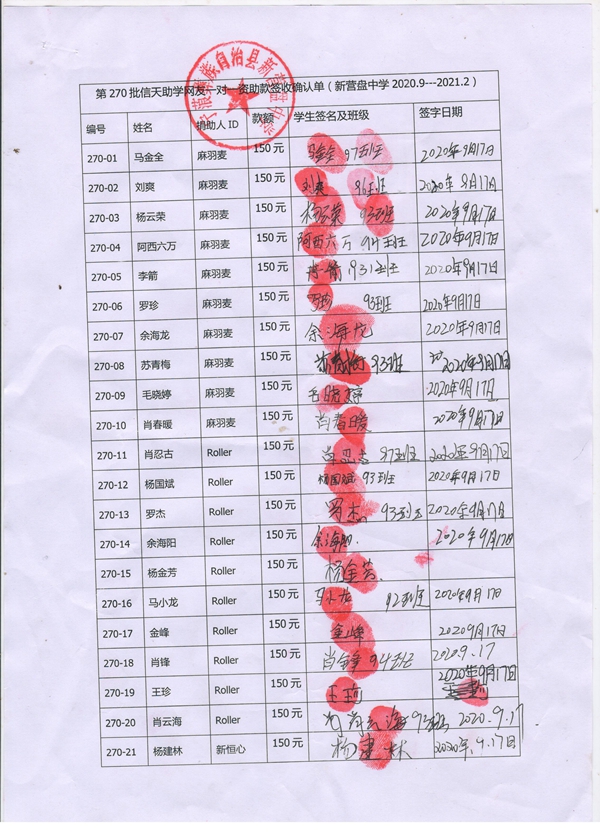 宁蒗彝族自治县新营盘中学
第 270 批信天助学网友一对一资助款签收确认单（新营盘中学 2020.9---2021.2）
编号 姓名 捐助人 ID 款额 学生签名及班级 签字日期
270-01 马金全 麻羽麦 150 元 马金全 97班 2020年9月17日
270-02 刘爽 麻羽麦 150 元 刘爽 96班 2020年9月17日
270-03 杨云荣 麻羽麦 150 元 杨云荣 93班 2020年9月17日
270-04 阿西六万 麻羽麦 150 元 阿西六万 94班 2020年9月17日
270-05 李箭 麻羽麦 150 元 李箭 93班 2020年9月17日
270-06 罗珍 麻羽麦 150 元 罗珍 93班 2020年9月17日
270-07 余海龙 麻羽麦 150 元 余海龙 2020年9月17日
270-08 苏青梅 麻羽麦 150 元 苏青梅 93班 2020年9月17日
270-09 毛晓婷 麻羽麦 150 元 毛晓婷 2020年9月17日
270-10 肖春暖 麻羽麦 150 元 肖春暖 2020年9月17日
270-11 肖忍古 Roller 150 元 肖忍古 97班 2020年9月17日
270-12 杨国斌 Roller 150 元 杨国斌 93班 2020年9月17日
270-13 罗杰 Roller 150 元 罗杰 93班 2020年9月17日
270-14 余海阳 Roller 150 元 余海阳 2020年9月17日
270-15 杨金芳 Roller 150 元 杨金芳 2020年9月17日
270-16 马小龙 Roller 150 元 马小龙 92班 2020年9月17日
270-17 金峰 Roller 150 元 金峰 2020年9月17日
270-18 肖锋 Roller 150 元 肖锋 94班 2020.9.17
270-19 王珍 Roller 150 元 王珍 2020年9月17日
270-20 肖云海 Roller 150 元 肖云海 93班 2020.9.17
270-21 杨建林 新恒心 150 元 杨建林 2020年.9.17日